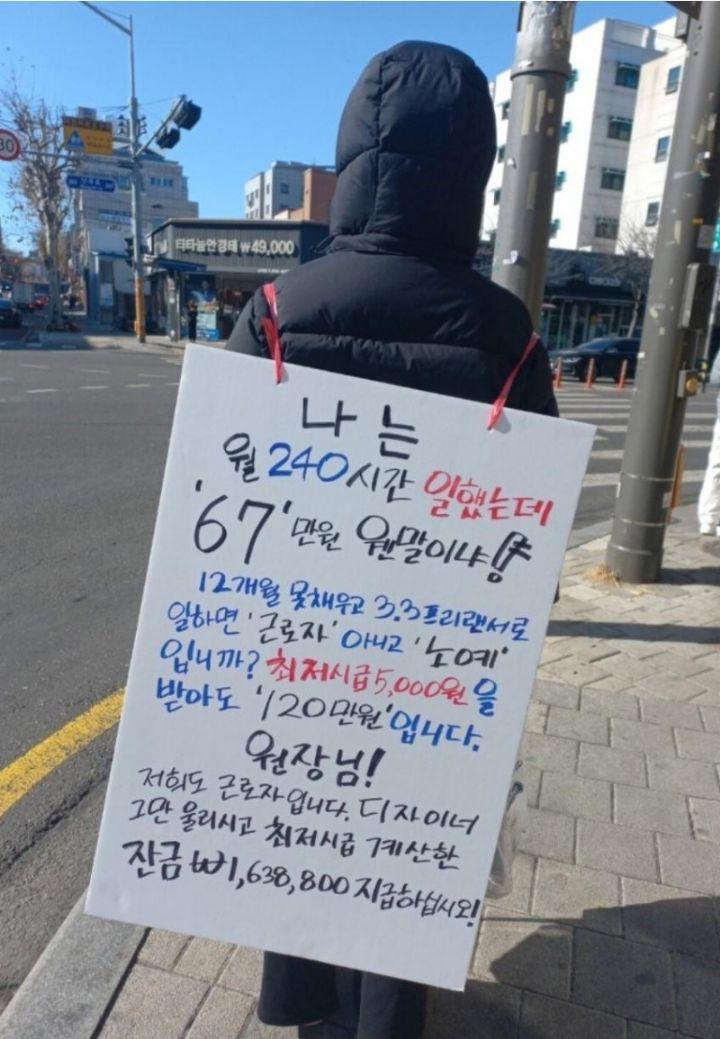 30
타타늄안경테 ₩49,000
나는
월 240시간 일했는데
'67'만원 웬말이냐!
12개월 못채우고 3.3프리랜서로
일하면 '근로자' 아니고 '노예'
입니까? 최저시급 5,000원을
받아도 '120만원'입니다.
원장님!
저희도 근로자입니다. 디자이너
그만 울리시고 최저시급 계산한
잔금 ₩1,638,800 지급하십시오!